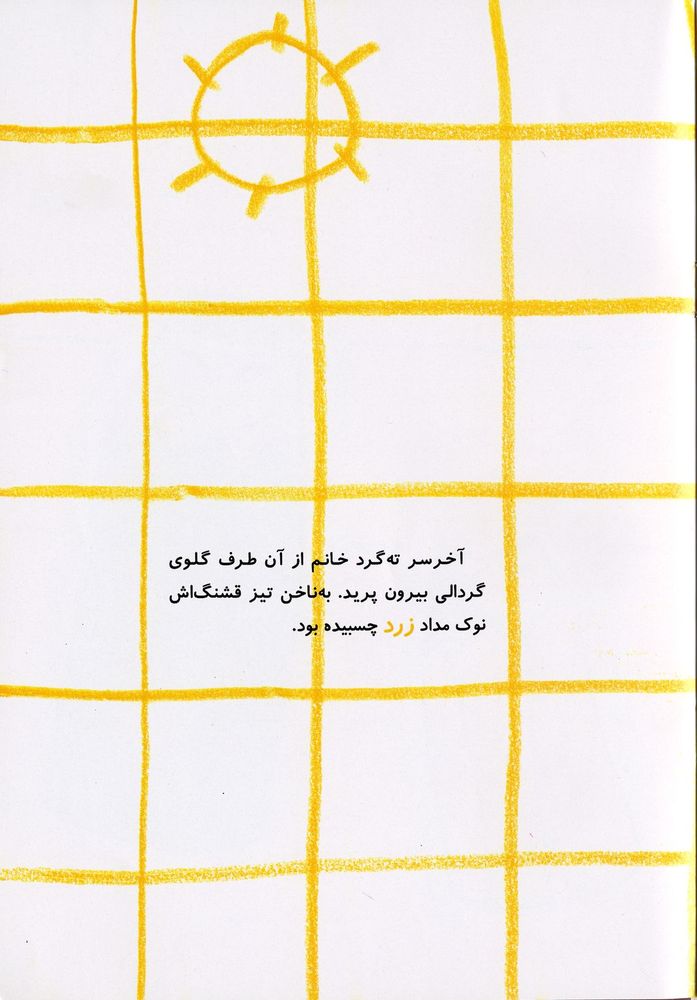 آخرسر ته‌گرد خانم از آن طرف گلوی
گردالی بیرون پرید. به‌ناخن تیز قشنگ‌اش
نوک مداد زرد چسبیده بود.